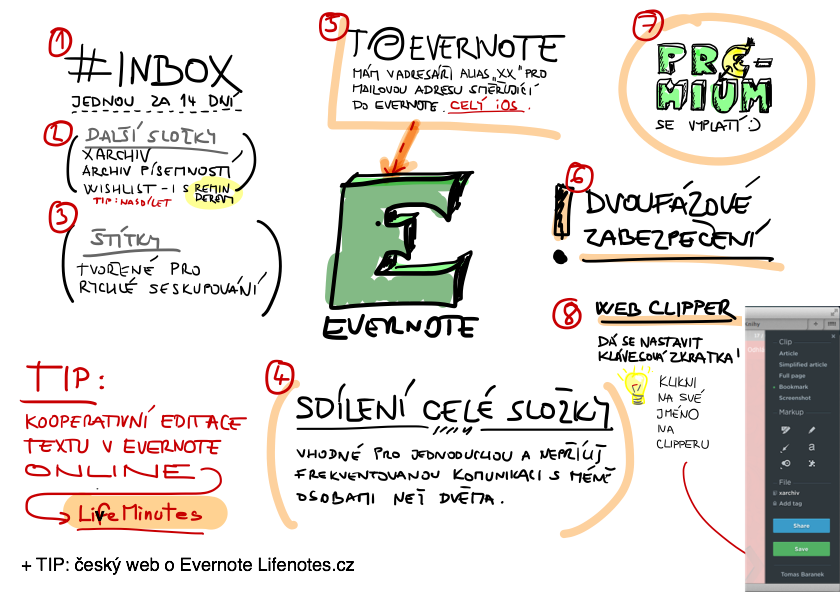 1
#INBOX
JEDNOU ZA 14 DNÍ
2
DALŠÍ SLOŽKY
XARCHIV
ARCHIV PÍSEMNOSTÍ
WISHLIST - I S REMIN
DEREM
TIP: NASDÍLET
3
ŠTÍTKY
TVOŘENÉ PRO
RYCHLÉ SESKUPOVÁNÍ
TIP:
KOOPERATIVNÍ EDITACE
TEXTU V EVERNOTE
ONLINE
LifeMinutes
+ TIP: český web o Evernote Lifenotes.cz
5
T@EVERNOTE
MÁM V ADRESÁŘI ALIAS „XX“ PRO
MAILOVOU ADRESU SMĚŘUJÍCÍ
DO EVERNOTE. CELÝ iOS.
E
EVERNOTE
4
SDÍLENÍ CELÉ SLOŽKY
VHODNÉ PRO JEDNODUCHOU A NEPŘÍLIŠ
FREKVENTOVANOU KOMUNIKACI S MÉNĚ
OSOBAMI NEŽ DVĚMA.
7
PRE-
MIUM
SE VYPLATÍ :)
6
! DVOUFÁZOVÉ
ZABEZPEČENÍ
8
WEB CLIPPER
DÁ SE NASTAVIT
KLÁVESOVÁ ZKRATKA!
KLIKNI
NA SVÉ
JMÉNO
NA
CLIPPERU
Clip
Article
Simplified article
Full page
Bookmark
Screenshot
Markup
a
File
xarchiv
Add tag
Share
Save
Tomas Baranek